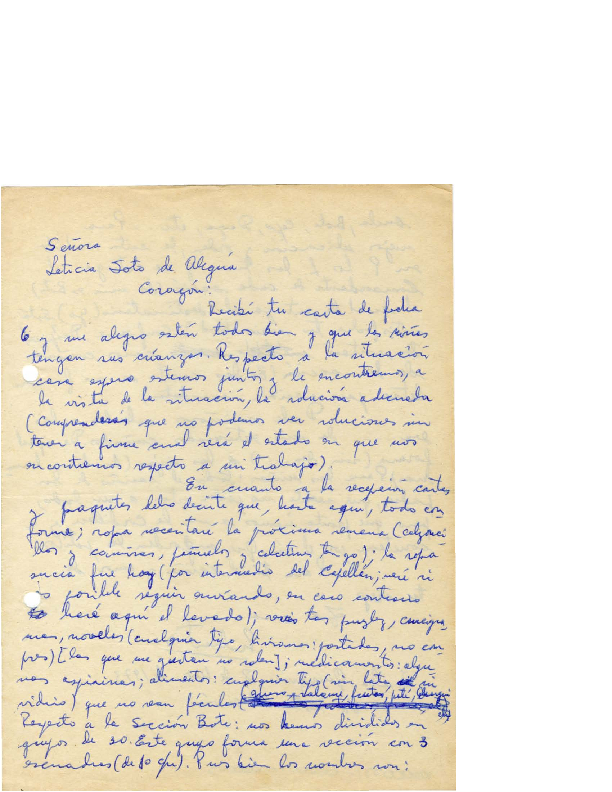 Señora
Leticia Soto de Alegría
Corazón:
Recibí tu carta de fecha
6 y me alegro estén todos bien y que las niñas
tengan sus crianzas. Respecto a la situación
casa espero estemos juntos y le encontremos, a
la vista de la situación, la solución adecuada
(Comprenderás que no podemos ver soluciones sin
tener a firme cual será el estado en que nos
encontremos respecto a mi trabajo).
En cuanto a la recepción cartas
y paquetes debo decirte que, hasta aquí, todo con
forme; ropa necesitaré la próxima semana (calzonci
llos y camisas, pañuelos y calcetines tengo); la ropa
sucia fue hoy (por intermedio del Capellán; veré si
es posible seguir enviando, en caso contrario
haré aquí el lavado); revistas puzley, crucigra
mas, novelas (cualquier tipo, livianas: portadas, no
) [las que me gustan no valen]; medicamentos: algu
nas aspirinas; alimentos: cualquier tipo (sin lata ni
vidrio) que no sean féculas (queso, salame, frutas, paté,
Respecto a la Sección Bote: nos hemos divididos en
grupos de 30. Este grupo forma una sección con 3
escuadras (de 10 c/u). Pues bien los nombres son: